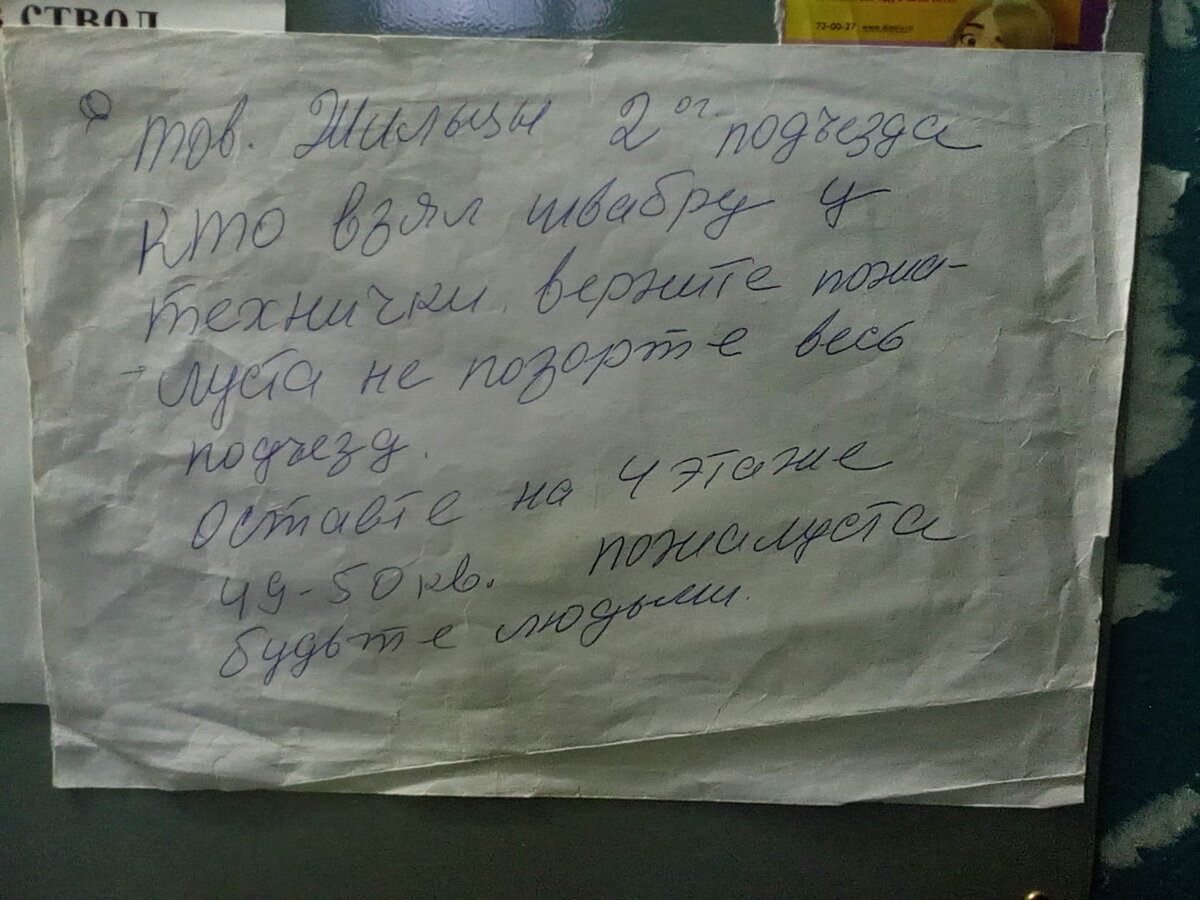 СТВОЛ
72-00-27
тов. Жильцы 2ог подъезда
Кто взял швабру у
технички. верните пожа-
луста не позорте весь
подъезд.
Оставте на 4 этаже
49-50 кв. пожалуста
будьте людьми.